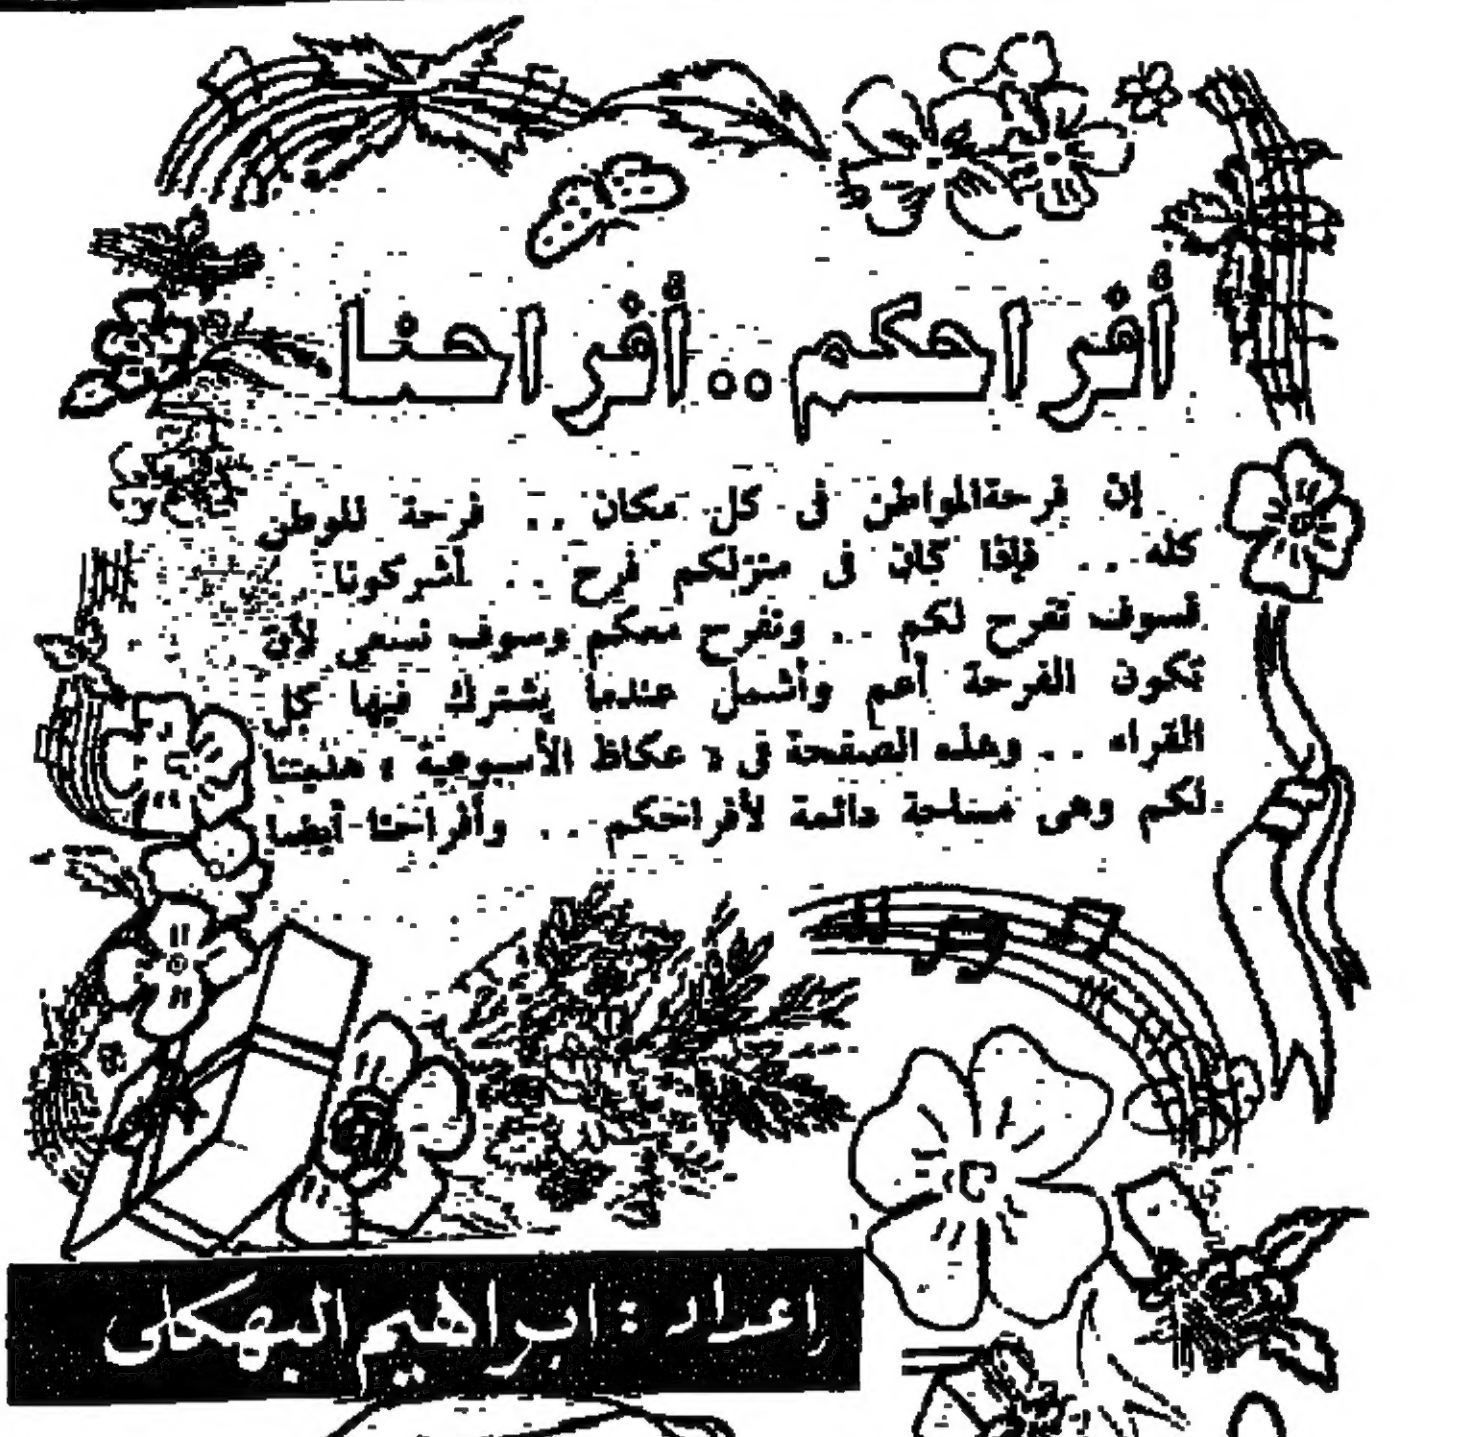 أفراحكم .. أفراحنا
إن فرحة المواطن فى كل مكان .. فرحة للوطن
كله .. فإذا كان فى منزلكم فرح .. أشركونا
فسوف نفرح لكم .. ونفرح معكم وسوف نسعى لأن
تكون الفرحة أعم وأشمل عندما يشترك فيها كل
القراء .. وهذه الصفحة فى « عكاظ الأسبوعية » هديتنا
لكم وهى مساحة دائمة لأفراحكم .. وأفراحنا أيضا
اعداد : ابراهيم البهكلى